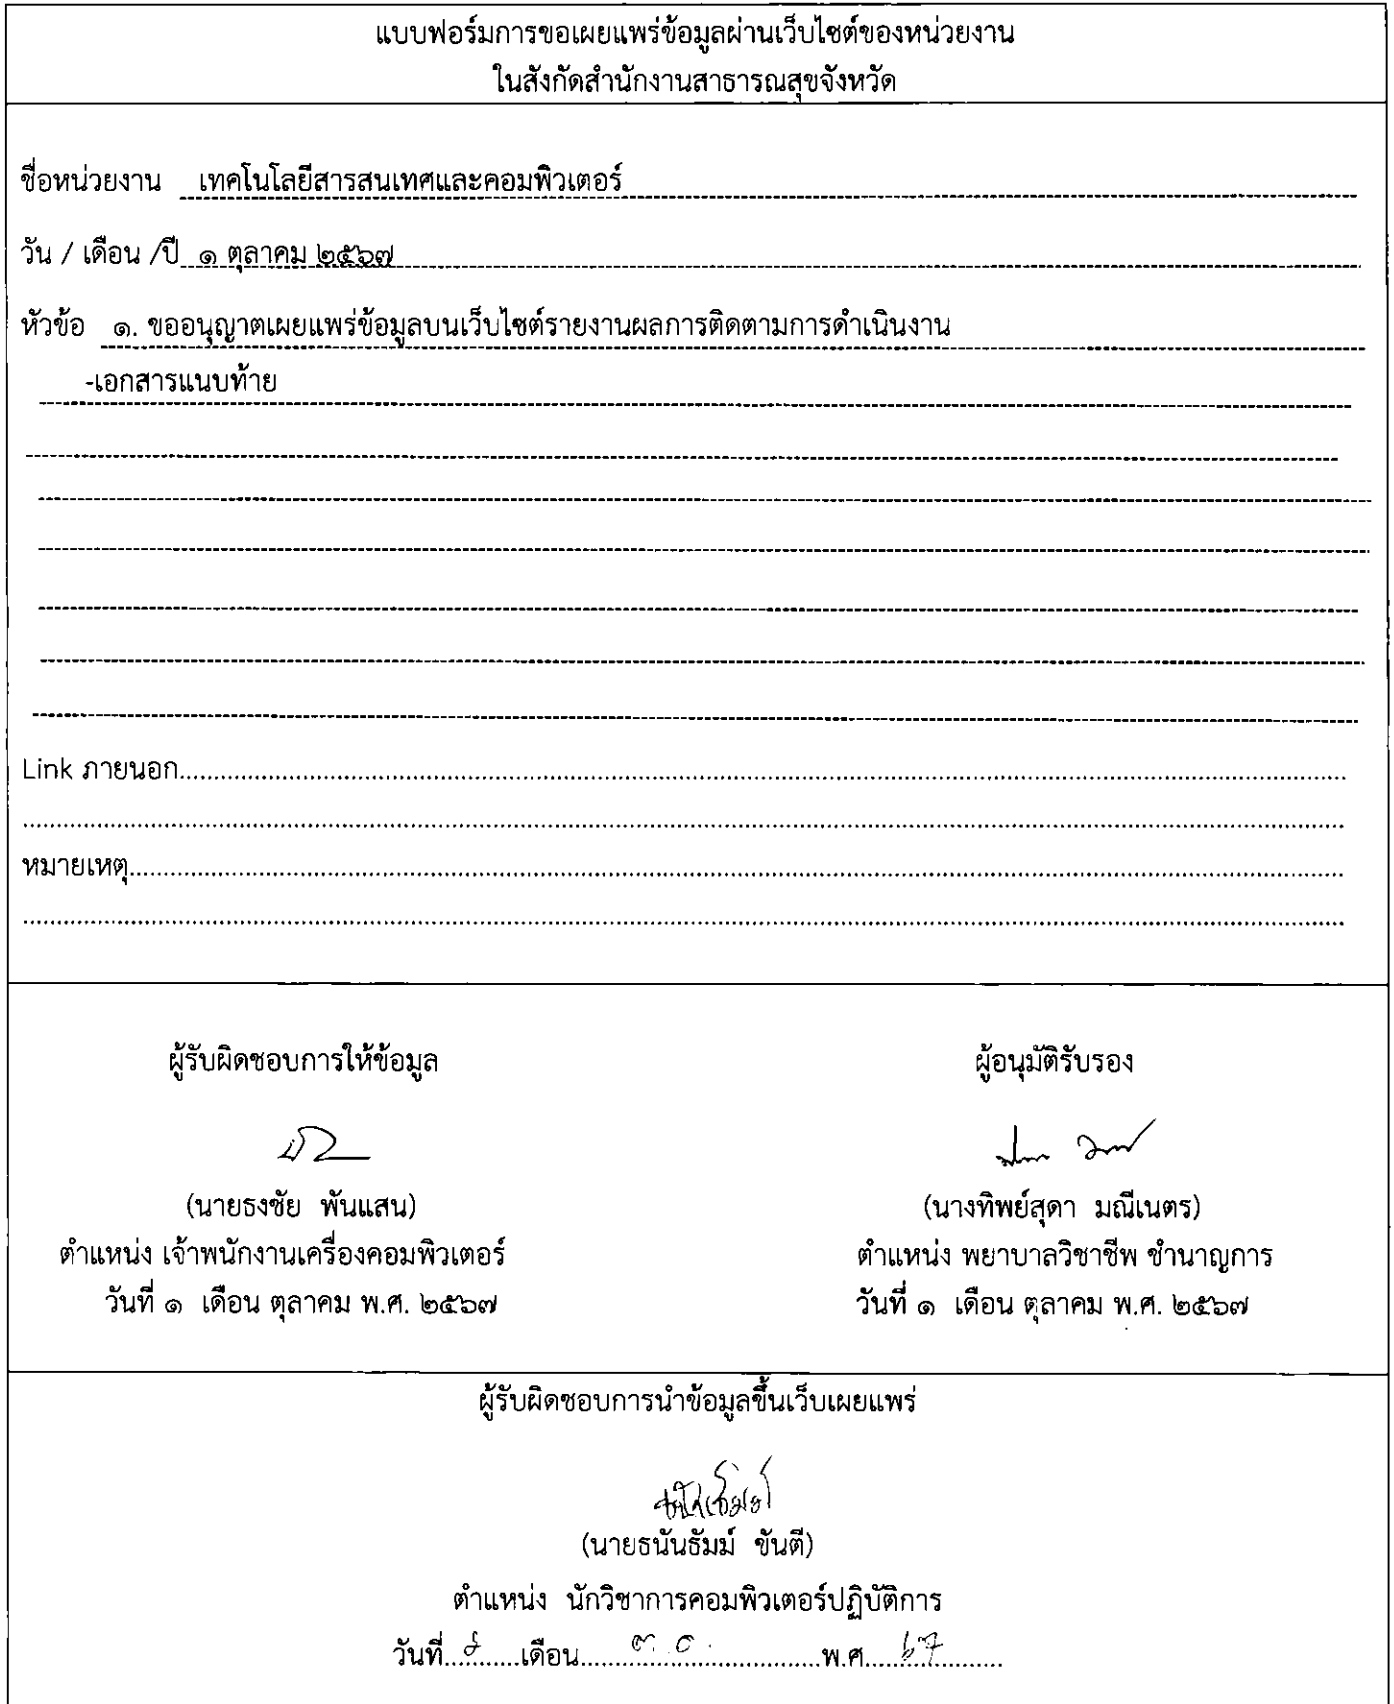 แบบฟอร์มการขอเผยแพร่ข้อมูลผ่านเว็บไซต์ของหน่วยงาน
ในสังกัดสำนักงานสาธารณสุขจังหวัด
ชื่อหน่วยงาน เทคโนโลยีสารสนเทศและคอมพิวเตอร์
วัน / เดือน /ปี ๑ ตุลาคม ๒๕๖๗
หัวข้อ ๑. ขออนุญาตเผยแพร่ข้อมูลบนเว็บไซต์รายงานผลการติดตามการดำเนินงาน
-เอกสารแนบท้าย
Link ภายนอก
หมายเหตุ
ผู้รับผิดชอบการให้ข้อมูล ผู้อนุมัติรับรอง
(นายธงชัย พันแสน) (นางทิพย์สุดา มณีเนตร)
ตำแหน่ง เจ้าพนักงานเครื่องคอมพิวเตอร์ ตำแหน่ง พยาบาลวิชาชีพ ชำนาญการ
วันที่ ๑ เดือน ตุลาคม พ.ศ. ๒๕๖๗ วันที่ ๑ เดือน ตุลาคม พ.ศ. ๒๕๖๗
ผู้รับผิดชอบการนำข้อมูลขึ้นเว็บเผยแพร่
(นายธนันธัมม์ ขันตี)
ตำแหน่ง นักวิชาการคอมพิวเตอร์ปฏิบัติการ
วันที่ เดือน ต.ค. พ.ศ. ๖๗